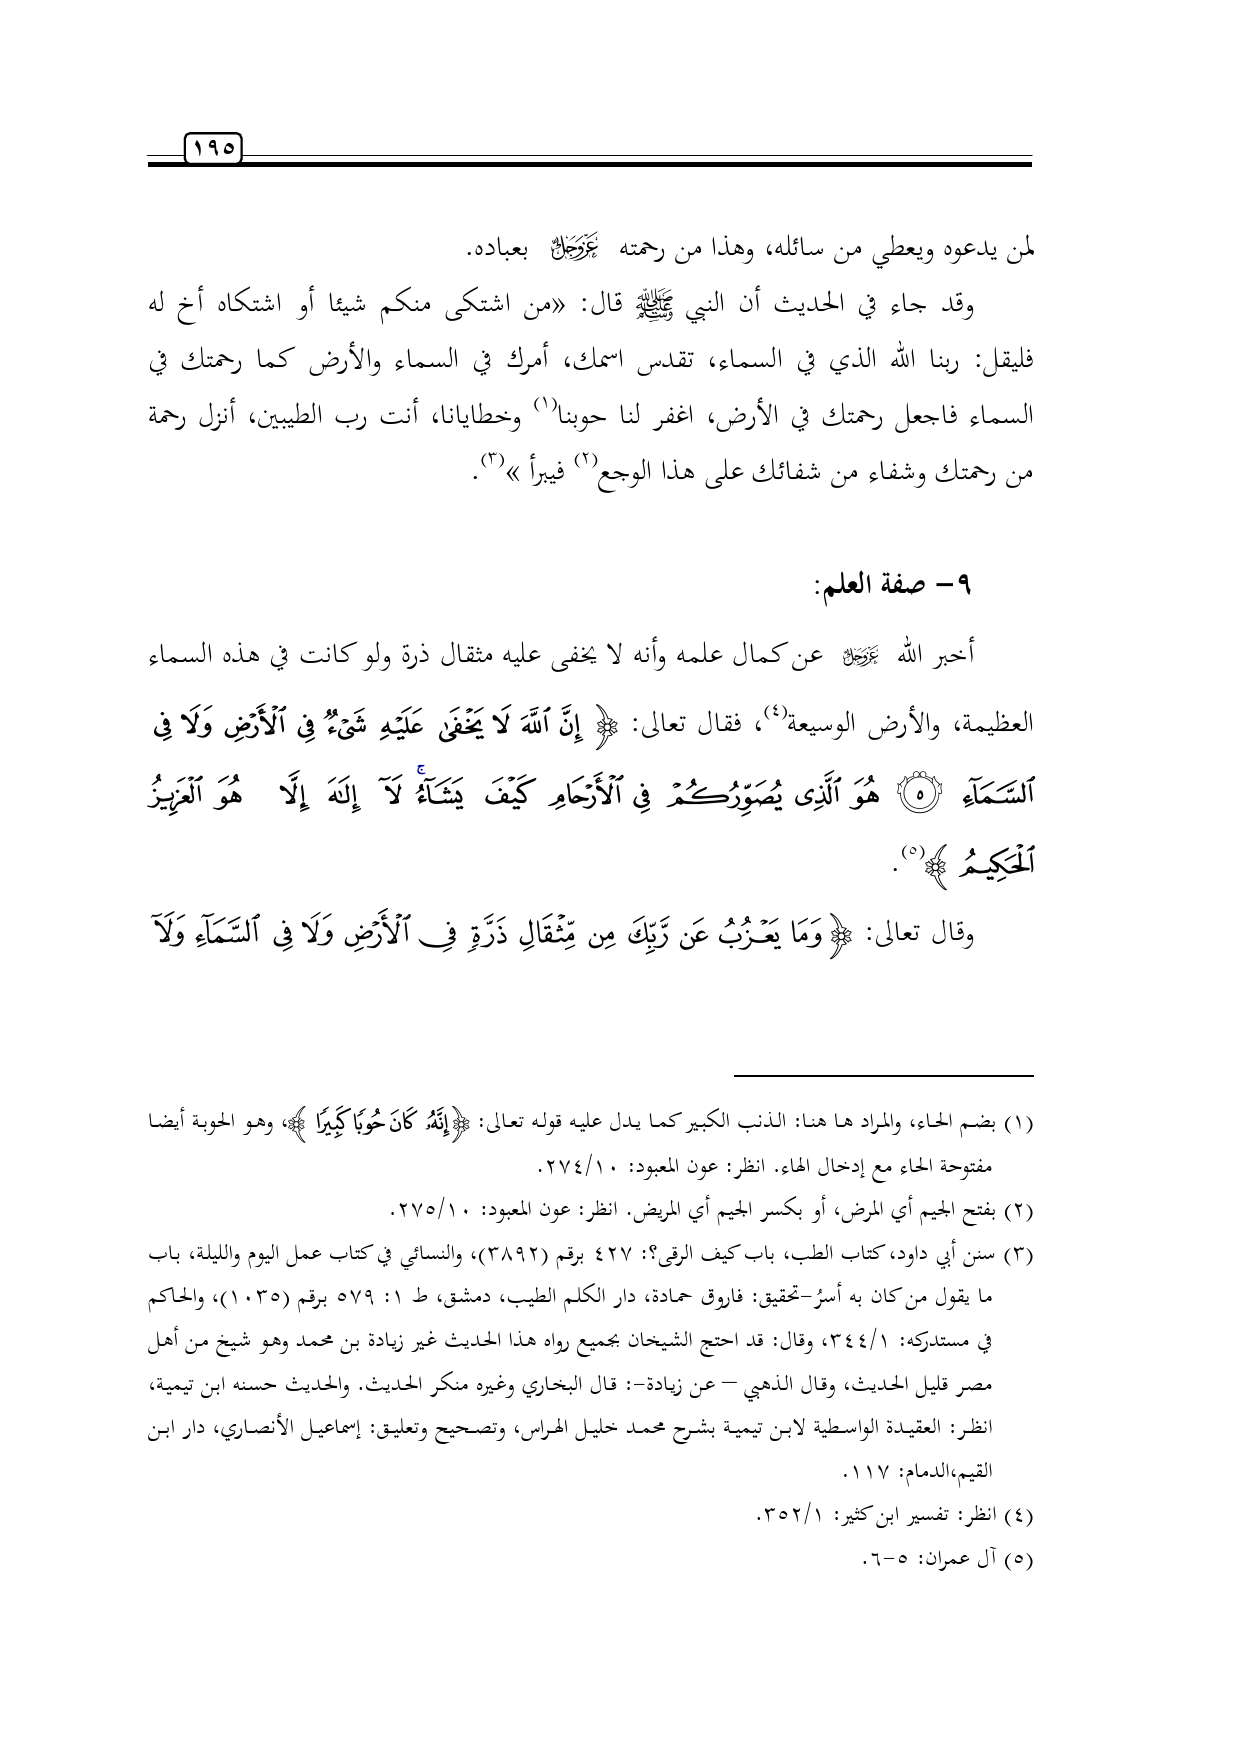 ١٩٥
لمن يدعوه ويعطي من سائله، وهذا من رحمته ﷻ بعباده.
وقد جاء في الحديث أن النبي ﷺ قال: «من اشتكى منكم شيئا أو اشتكاه أخ له
فليقل: ربنا الله الذي في السماء، تقدس اسمك، أمرك في السماء والأرض كما رحمتك في
السماء فاجعل رحمتك في الأرض، اغفر لنا حوبنا(١) وخطايانا، أنت رب الطيبين، أنزل رحمة
من رحمتك وشفاء من شفائك على هذا الوجع(٢) فيبرأ »(٣).
٩– صفة العلم:
أخبر الله عَزَّوَجَلَّ عن كمال علمه وأنه لا يخفى عليه مثقال ذرة ولو كانت في هذه السماء
العظيمة، والأرض الوسيعة(٤)، فقال تعالى: ﴿ إِنَّ ٱللَّهَ لَا يَخْفَىٰ عَلَيْهِ شَىْءٌ فِى ٱلْأَرْضِ وَلَا فِى
ٱلسَّمَآءِ ۝٥ هُوَ ٱلَّذِى يُصَوِّرُكُمْ فِى ٱلْأَرْحَامِ كَيْفَ يَشَآءُ ۚ لَآ إِلَٰهَ إِلَّا هُوَ ٱلْعَزِيزُ
ٱلْحَكِيمُ ﴾(٥).
وقال تعالى: ﴿ وَمَا يَعْزُبُ عَن رَّبِّكَ مِن مِّثْقَالِ ذَرَّةٍ فِى ٱلْأَرْضِ وَلَا فِى ٱلسَّمَآءِ وَلَآ
(١) بضم الحاء، والمراد ها هنا: الذنب الكبير كما يدل عليه قوله تعالى: ﴿إِنَّهُۥ كَانَ حُوبًا كَبِيرًا ﴾، وهو الحوبة أيضا
مفتوحة الحاء مع إدخال الهاء. انظر: عون المعبود: ٢٧٤/١٠.
(٢) بفتح الجيم أي المرض، أو بكسر الجيم أي المريض. انظر: عون المعبود: ٢٧٥/١٠.
(٣) سنن أبي داود، كتاب الطب، باب كيف الرقى؟: ٤٢٧ برقم (٣٨٩٢)، والنسائي في كتاب عمل اليوم والليلة، باب
ما يقول من كان به أسرُ-تحقيق: فاروق حمادة، دار الكلم الطيب، دمشق، ط ١: ٥٧٩ برقم (١٠٣٥)، والحاكم
في مستدركه: ٣٤٤/١، وقال: قد احتج الشيخان بجميع رواه هذا الحديث غير زيادة بن محمد وهو شيخ من أهل
مصر قليل الحديث، وقال الذهبي – عن زيادة-: قال البخاري وغيره منكر الحديث. والحديث حسنه ابن تيمية،
انظر: العقيدة الواسطية لابن تيمية بشرح محمد خليل الهراس، وتصحيح وتعليق: إسماعيل الأنصاري، دار ابن
القيم،الدمام: ١١٧.
(٤) انظر: تفسير ابن كثير: ٣٥٢/١.
(٥) آل عمران: ٥-٦.